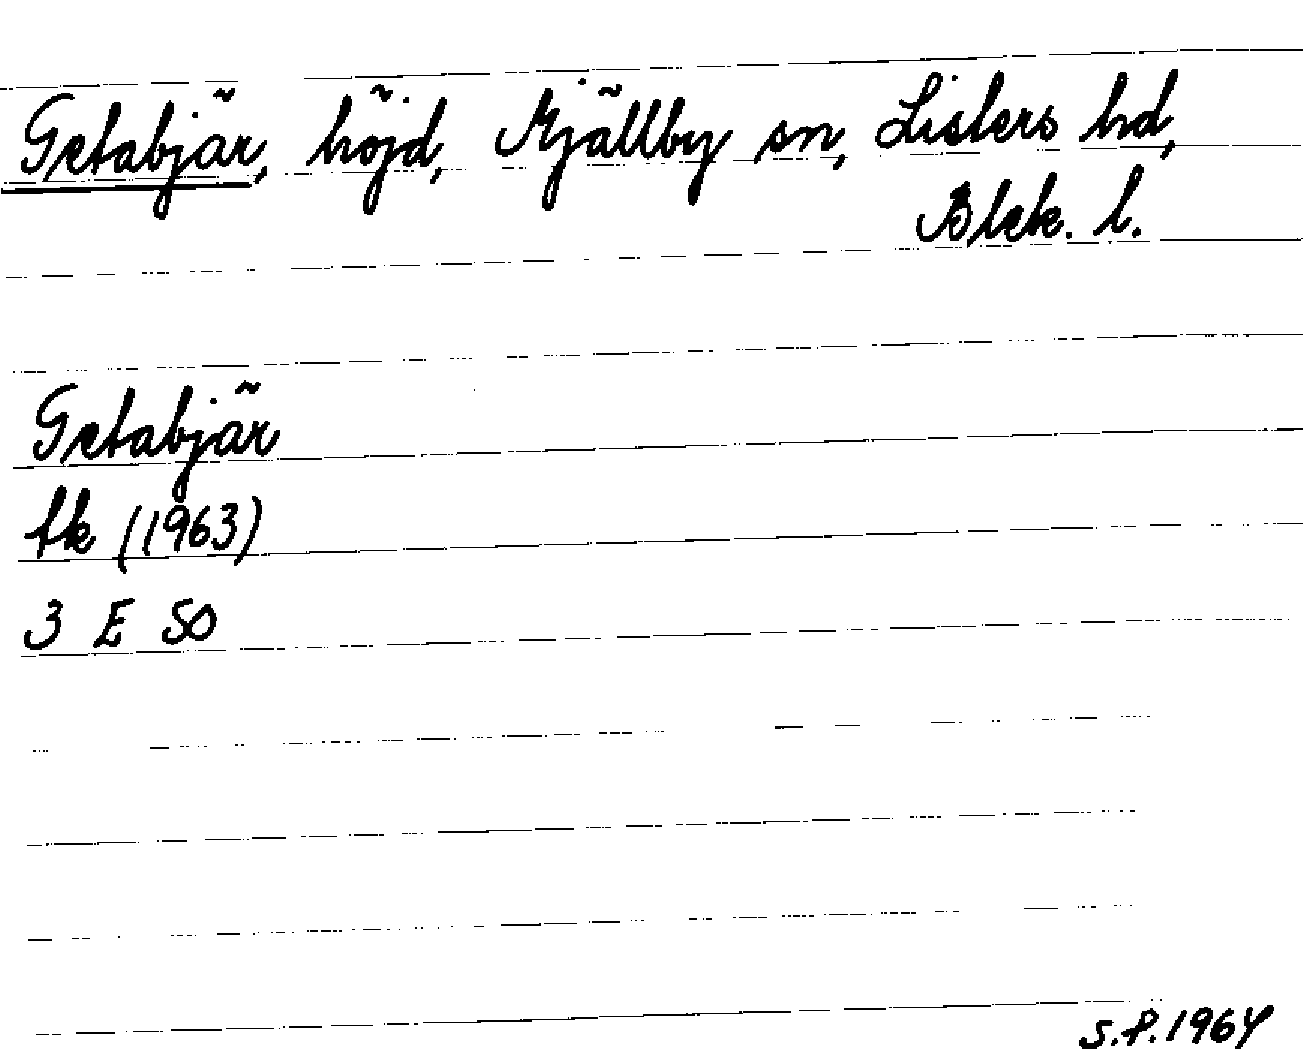 Getabjär, höjd, Mjällby sn, Listers hd,
Blek. l.
Getabjär
fk (1963)
3 E SO
S.P. 1964